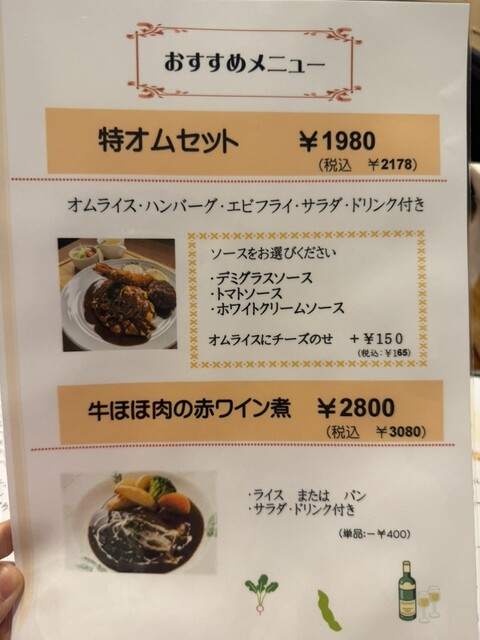 おすすめメニュー
特オムセット ￥1980
(税込 ￥2178)
オムライス・ハンバーグ・エビフライ・サラダ・ドリンク付き
ソースをお選びください
・デミグラスソース
・トマトソース
・ホワイトクリームソース
オムライスにチーズのせ ＋￥150
(税込:￥165)
牛ほほ肉の赤ワイン煮 ￥2800
(税込 ￥3080)
・ライス または パン
・サラダ・ドリンク付き
(単品:－￥400)